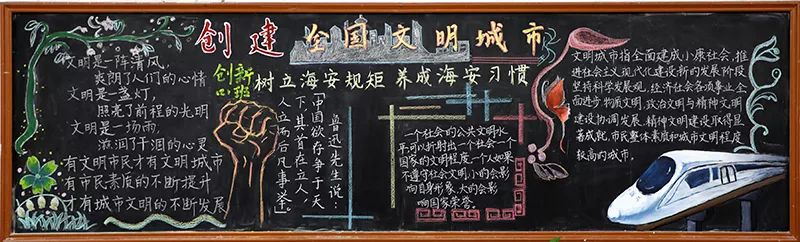 创建全国文明城市
创新
口班
树立海安规矩 养成海安习惯
文明是一阵清风,
爽朗了人们的心情
文明是一盏灯,
照亮了前程的光明
文明是一场雨,
滋润了干涸的心灵
有文明市民才有文明城市
有市民素质的不断提升
才有城市文明的不断发展
鲁迅先生说:
「中国欲存争于天
下,其首在立人,
人立而后凡事举」
一个社会的公共文明水
平可以折射出一个社会一个
国家的文明程度,一个人如果
不遵守社会文明,小的会影
响自身形象,大的会影
响国家荣誉。
文明城市指全面建成小康社会,推
进社会主义现代化建设新的发展阶段
坚持科学发展观,经济社会各项事业全
面进步,物质文明,政治文明与精神文明
建设协调发展,精神文明建设取得显
著成就,市民整体素质和城市文明程度
较高的城市。